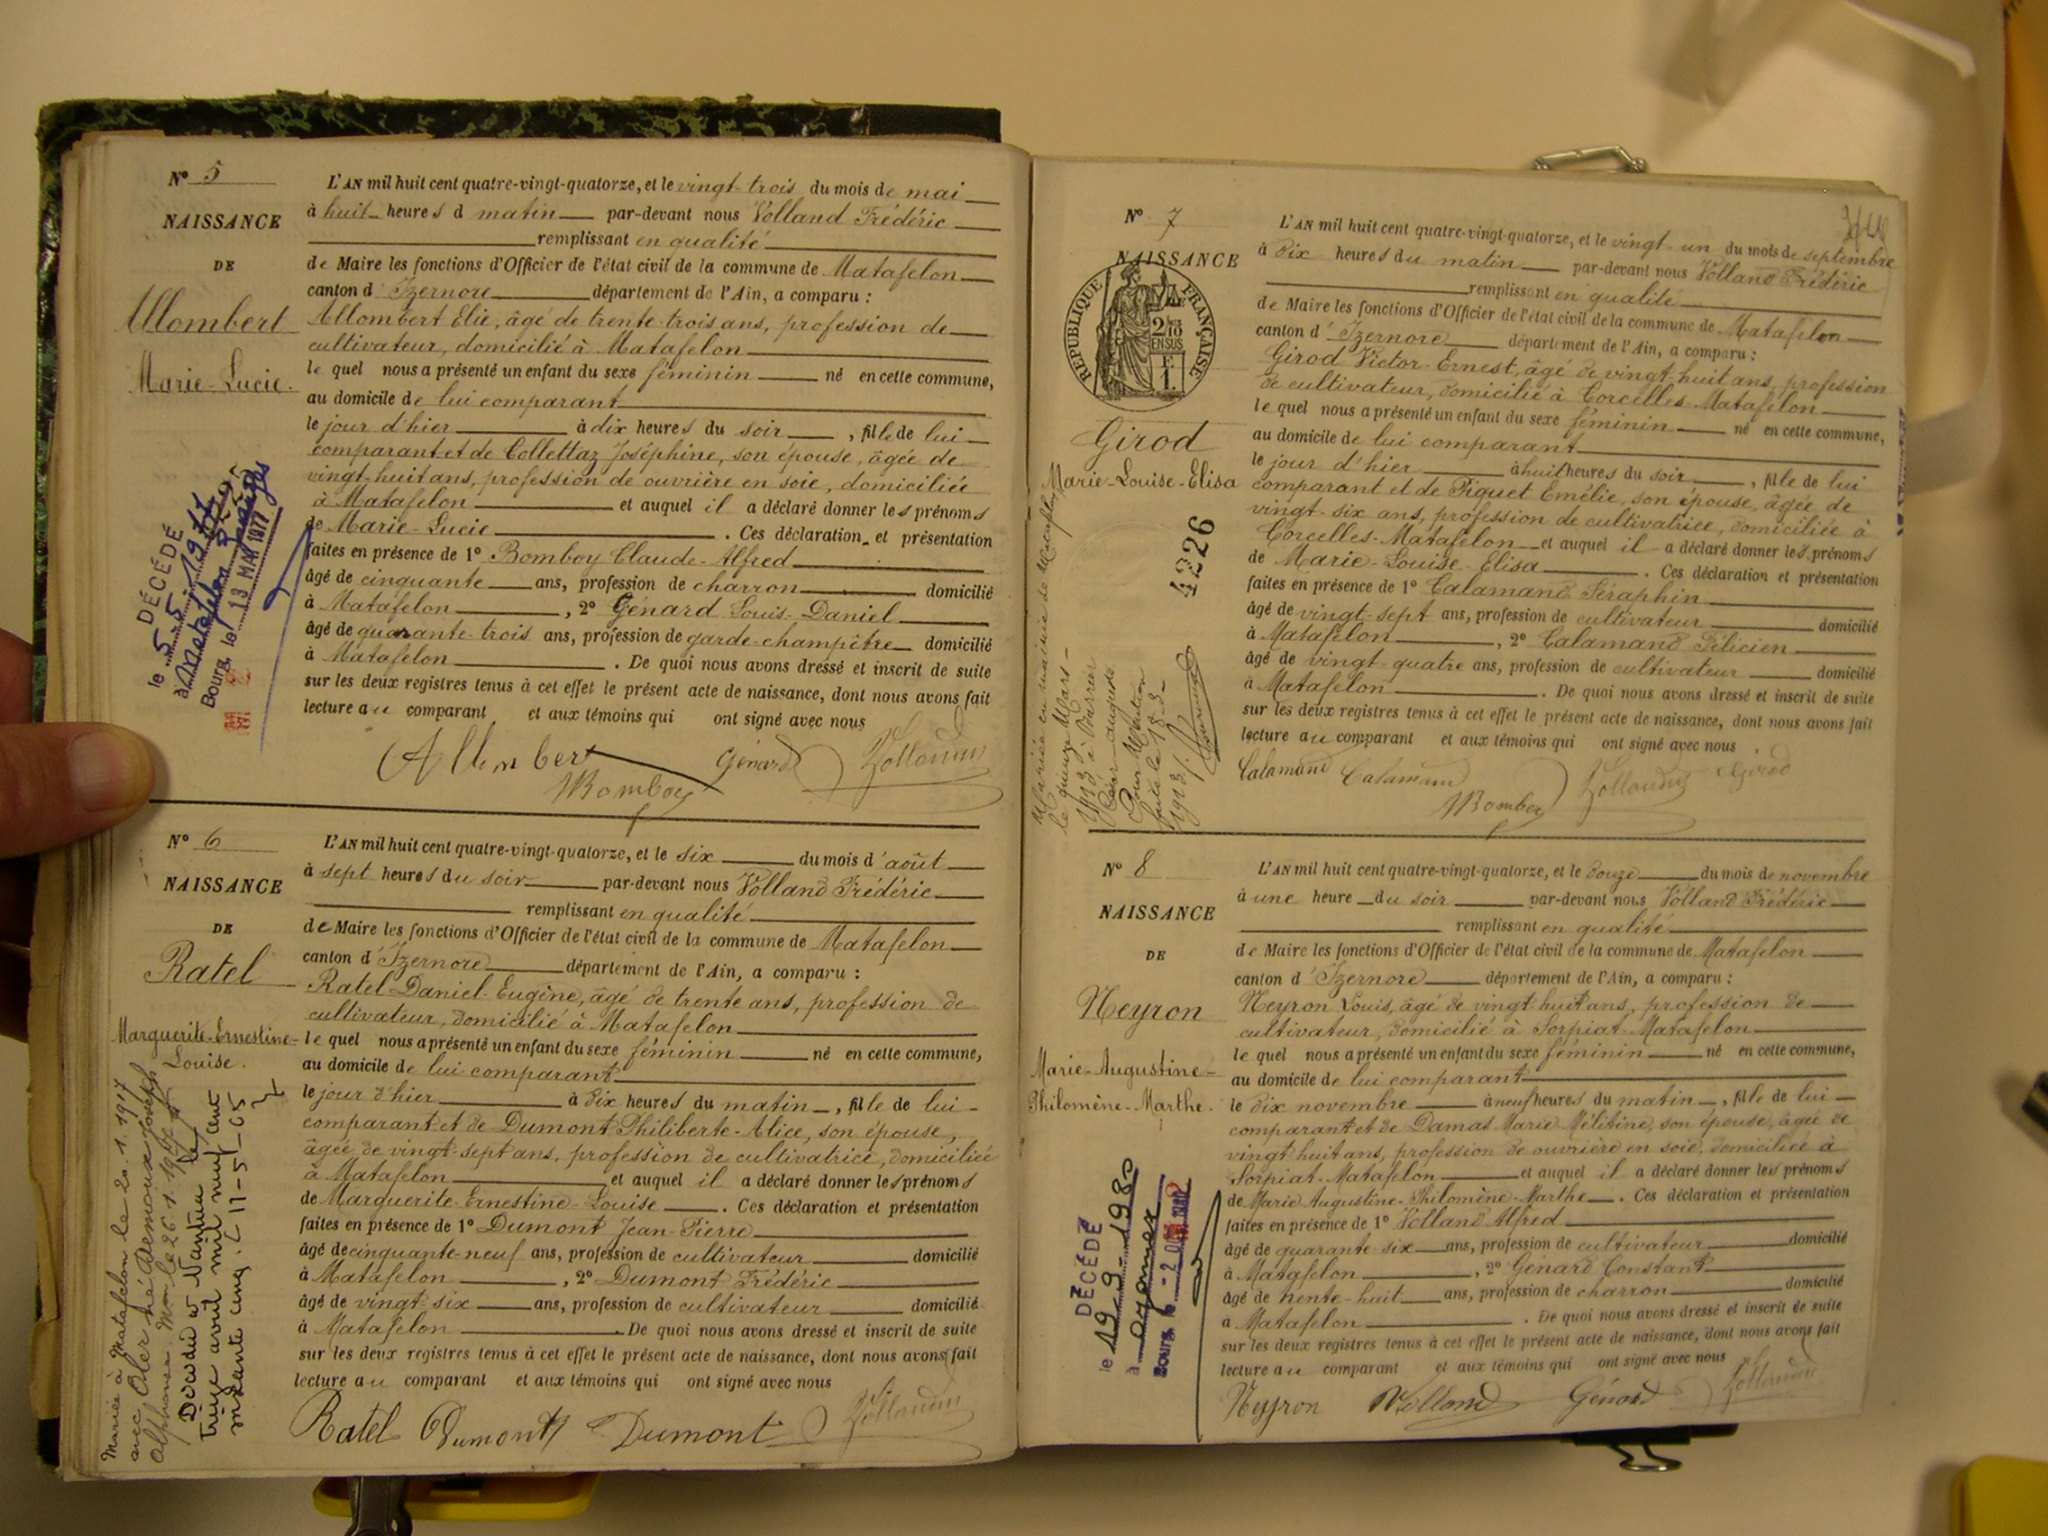 N° 5
NAISSANCE
DE
Allombert
Marie-Lucie.
L'AN mil huit cent quatre-vingt-quatorze, et le vingt-trois du mois de mai
à huit heures d matin par-devant nous Volland Frédéric
remplissant en qualité
de Maire les fonctions d'Officier de l'état civil de la commune de Matafelon
canton d'Izernore département de l'Ain, a comparu :
Allombert Elie, âgé de trente-trois ans, profession de
cultivateur, domicilié à Matafelon
le quel nous a présenté un enfant du sexe féminin né en cette commune,
au domicile de lui comparant
le jour d'hier à dix heures du soir, fille de lui
comparant et de Collettaz Joséphine, son épouse, âgée de
vingt-huit ans, profession de ouvrière en soie, domiciliée
à Matafelon et auquel il a déclaré donner les prénoms
de Marie-Lucie. Ces déclaration et présentation
faites en présence de 1° Bomboy Claude-Alfred
âgé de cinquante ans, profession de charron domicilié
à Matafelon, 2° Génard Louis-Daniel
âgé de quarante-trois ans, profession de garde-champêtre domicilié
à Matafelon. De quoi nous avons dressé et inscrit de suite
sur les deux registres tenus à cet effet le présent acte de naissance, dont nous avons fait
lecture au comparant et aux témoins qui ont signé avec nous
Allombert Génard Vollandfr
Bomboy
DÉCÉDÉ
le 5.5.1977
à Matafelon
Bourg, le 13 MAI 1977
N° 6
NAISSANCE
DE
Ratel
Marguerite-Ernestine-
Louise.
L'AN mil huit cent quatre-vingt-quatorze, et le six du mois d'août
à sept heures du soir par-devant nous Volland Frédéric
remplissant en qualité
de Maire les fonctions d'Officier de l'état civil de la commune de Matafelon
canton d'Izernore département de l'Ain, a comparu :
Ratel Daniel-Eugène, âgé de trente ans, profession de
cultivateur, domicilié à Matafelon
le quel nous a présenté un enfant du sexe féminin né en cette commune,
au domicile de lui comparant
le jour d'hier à dix heures du matin, fille de lui
comparant et de Dumont Philiberte-Alice, son épouse,
âgée de vingt-sept ans, profession de cultivatrice, domiciliée
à Matafelon et auquel il a déclaré donner les prénoms
de Marguerite-Ernestine-Louise. Ces déclaration et présentation
faites en présence de 1° Dumont Jean-Pierre
âgé de cinquante-neuf ans, profession de cultivateur domicilié
à Matafelon, 2° Dumont Frédéric
âgé de vingt-six ans, profession de cultivateur domicilié
à Matafelon. De quoi nous avons dressé et inscrit de suite
sur les deux registres tenus à cet effet le présent acte de naissance, dont nous avons fait
lecture au comparant et aux témoins qui ont signé avec nous
Ratel Dumont Dumont Vollandfr
Mariée à Matafelon le 20.1.1917
avec Joseph
Alphonse. le 26.1.
Décédée à Nantua le
treize avril mil neuf cent
soixante cinq. (11-5-65
N° 7
NAISSANCE
RÉPUBLIQUE FRANÇAISE
2/10 EN SUS
F 1.
Girod
Marie-Louise-Elisa
4226
L'AN mil huit cent quatre-vingt-quatorze, et le vingt-un du mois de septembre
à dix heures du matin par-devant nous Volland Frédéric
remplissant en qualité
de Maire les fonctions d'Officier de l'état civil de la commune de Matafelon
canton d'Izernore département de l'Ain, a comparu :
Girod Victor-Ernest, âgé de vingt-huit ans, profession
de cultivateur, domicilié à Corcelles-Matafelon
le quel nous a présenté un enfant du sexe féminin né en cette commune,
au domicile de lui comparant
le jour d'hier à huit heures du soir, fille de lui
comparant et de Piquet Emélie, son épouse, âgée de
vingt-six ans, profession de cultivatrice, domiciliée à
Corcelles-Matafelon et auquel il a déclaré donner les prénoms
de Marie-Louise-Elisa. Ces déclaration et présentation
faites en présence de 1° Calamand Séraphin
âgé de vingt-sept ans, profession de cultivateur domicilié
à Matafelon, 2° Calamand Félicien
âgé de vingt-quatre ans, profession de cultivateur domicilié
à Matafelon. De quoi nous avons dressé et inscrit de suite
sur les deux registres tenus à cet effet le présent acte de naissance, dont nous avons fait
lecture au comparant et aux témoins qui ont signé avec nous
Calamand Calamand Vollandfr Girod
Bomboy
Mariée en mairie de Matafelon
le quinze Mars
1923 à
Pour Mention
faite le
1923.
N° 8
NAISSANCE
DE
Neyron
Marie-Augustine-
Philomène-Marthe.
L'AN mil huit cent quatre-vingt-quatorze, et le douze du mois de novembre
à une heure du soir par-devant nous Volland Frédéric
remplissant en qualité
de Maire les fonctions d'Officier de l'état civil de la commune de Matafelon
canton d'Izernore département de l'Ain, a comparu :
Neyron Louis, âgé de vingt-huit ans, profession de
cultivateur, domicilié à Sorpiat-Matafelon
le quel nous a présenté un enfant du sexe féminin né en cette commune,
au domicile de lui comparant
le dix novembre à neuf heures du matin, fille de lui
comparant et de Damas Marie Mélitine, son épouse, âgée de
vingt huit ans, profession de ouvrière en soie, domiciliée à
Sorpiat-Matafelon et auquel il a déclaré donner les prénoms
de Marie Augustine-Philomène-Marthe. Ces déclaration et présentation
faites en présence de 1° Volland Alfred
âgé de quarante-six ans, profession de cultivateur domicilié
à Matafelon, 2° Génard Constant
âgé de trente-huit ans, profession de charron domicilié
à Matafelon. De quoi nous avons dressé et inscrit de suite
sur les deux registres tenus à cet effet le présent acte de naissance, dont nous avons fait
lecture au comparant et aux témoins qui ont signé avec nous
Neyron Volland Génard Vollandfr
DÉCÉDÉ
le 19-9-1980
à Oyonnax
Bourg, le